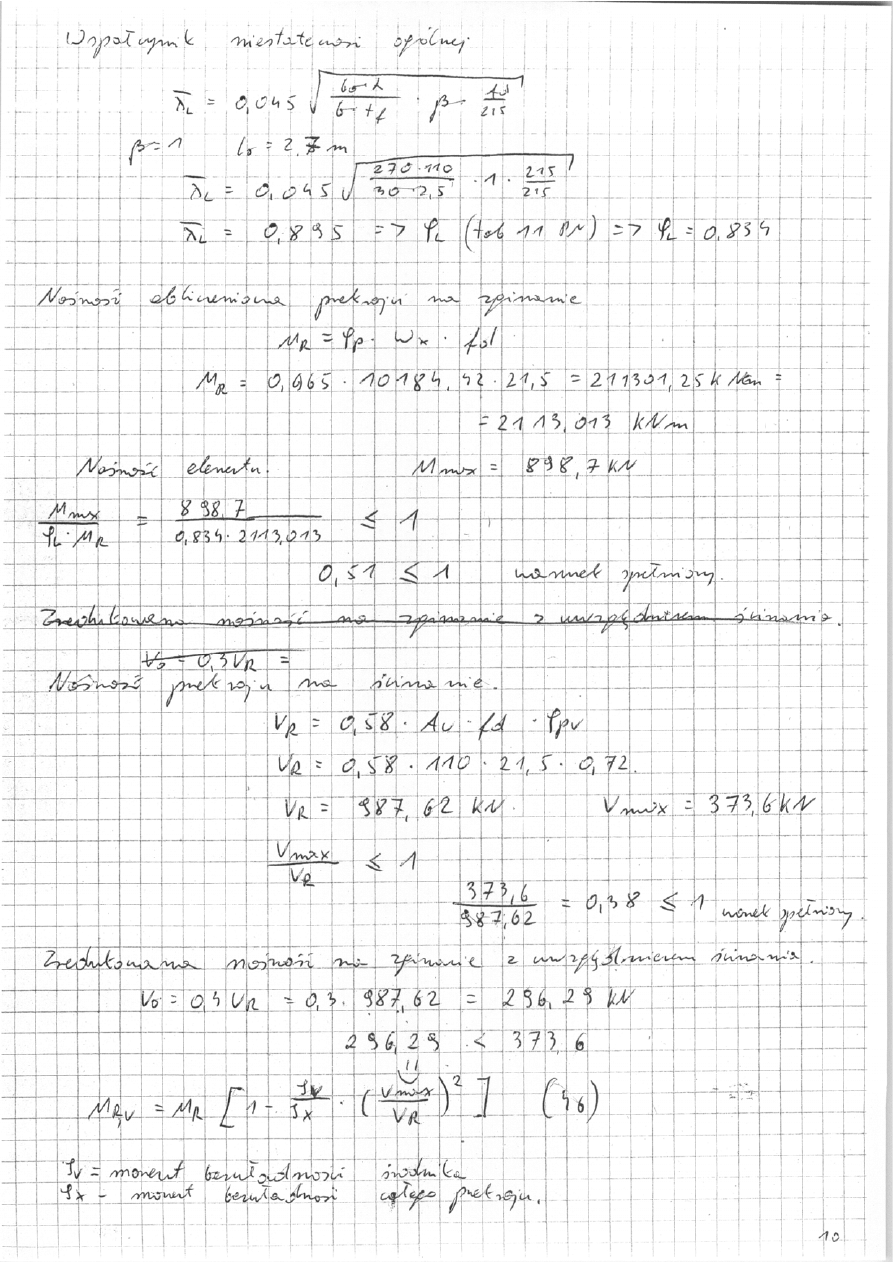 Współczynnik niestateczności ogólnej
λ̄L = 0,045 √( (l₀·h)/(b·tf) · β · fd/215 )
β = 1 l₀ = 2,7 m
λ̄L = 0,045 √( (270·110)/(30·2,5) · 1 · 215/215 )
λ̄L = 0,895 => φL (tab 11 PN) => φL = 0,834
Nośność obliczeniowa przekroju na zginanie
MR = φp · Wx · fd
MR = 0,965 · 10184,42 · 21,5 = 211301,25 kNcm =
= 2113,013 kNm
Nośność elementu. Mmax = 898,7 kN
Mmax/(φL·MR) = 898,7/(0,834·2113,013) ≤ 1
0,51 ≤ 1 warunek spełniony.
Zredukowana nośność na zginanie z uwzględnieniem ścinania.
V₀ = 0,3 VR =
Nośność przekroju na ścinanie.
VR = 0,58 · Av · fd · φpv
VR = 0,58 · 110 · 21,5 · 0,72.
VR = 987,62 kN. Vmax = 373,6 kN
Vmax/VR ≤ 1
373,6/987,62 = 0,38 ≤ 1 warunek spełniony.
Zredukowana nośność na zginanie z uwzględnieniem ścinania.
V₀ = 0,3 VR = 0,3 · 987,62 = 296,29 kN
296,29 < 373,6
MR,V = MR [ 1 - Jv/Jx · (Vmax/VR)² ] (46)
Jv = moment bezwładności środnika
Jx - moment bezwładnosi całego przekroju.
10